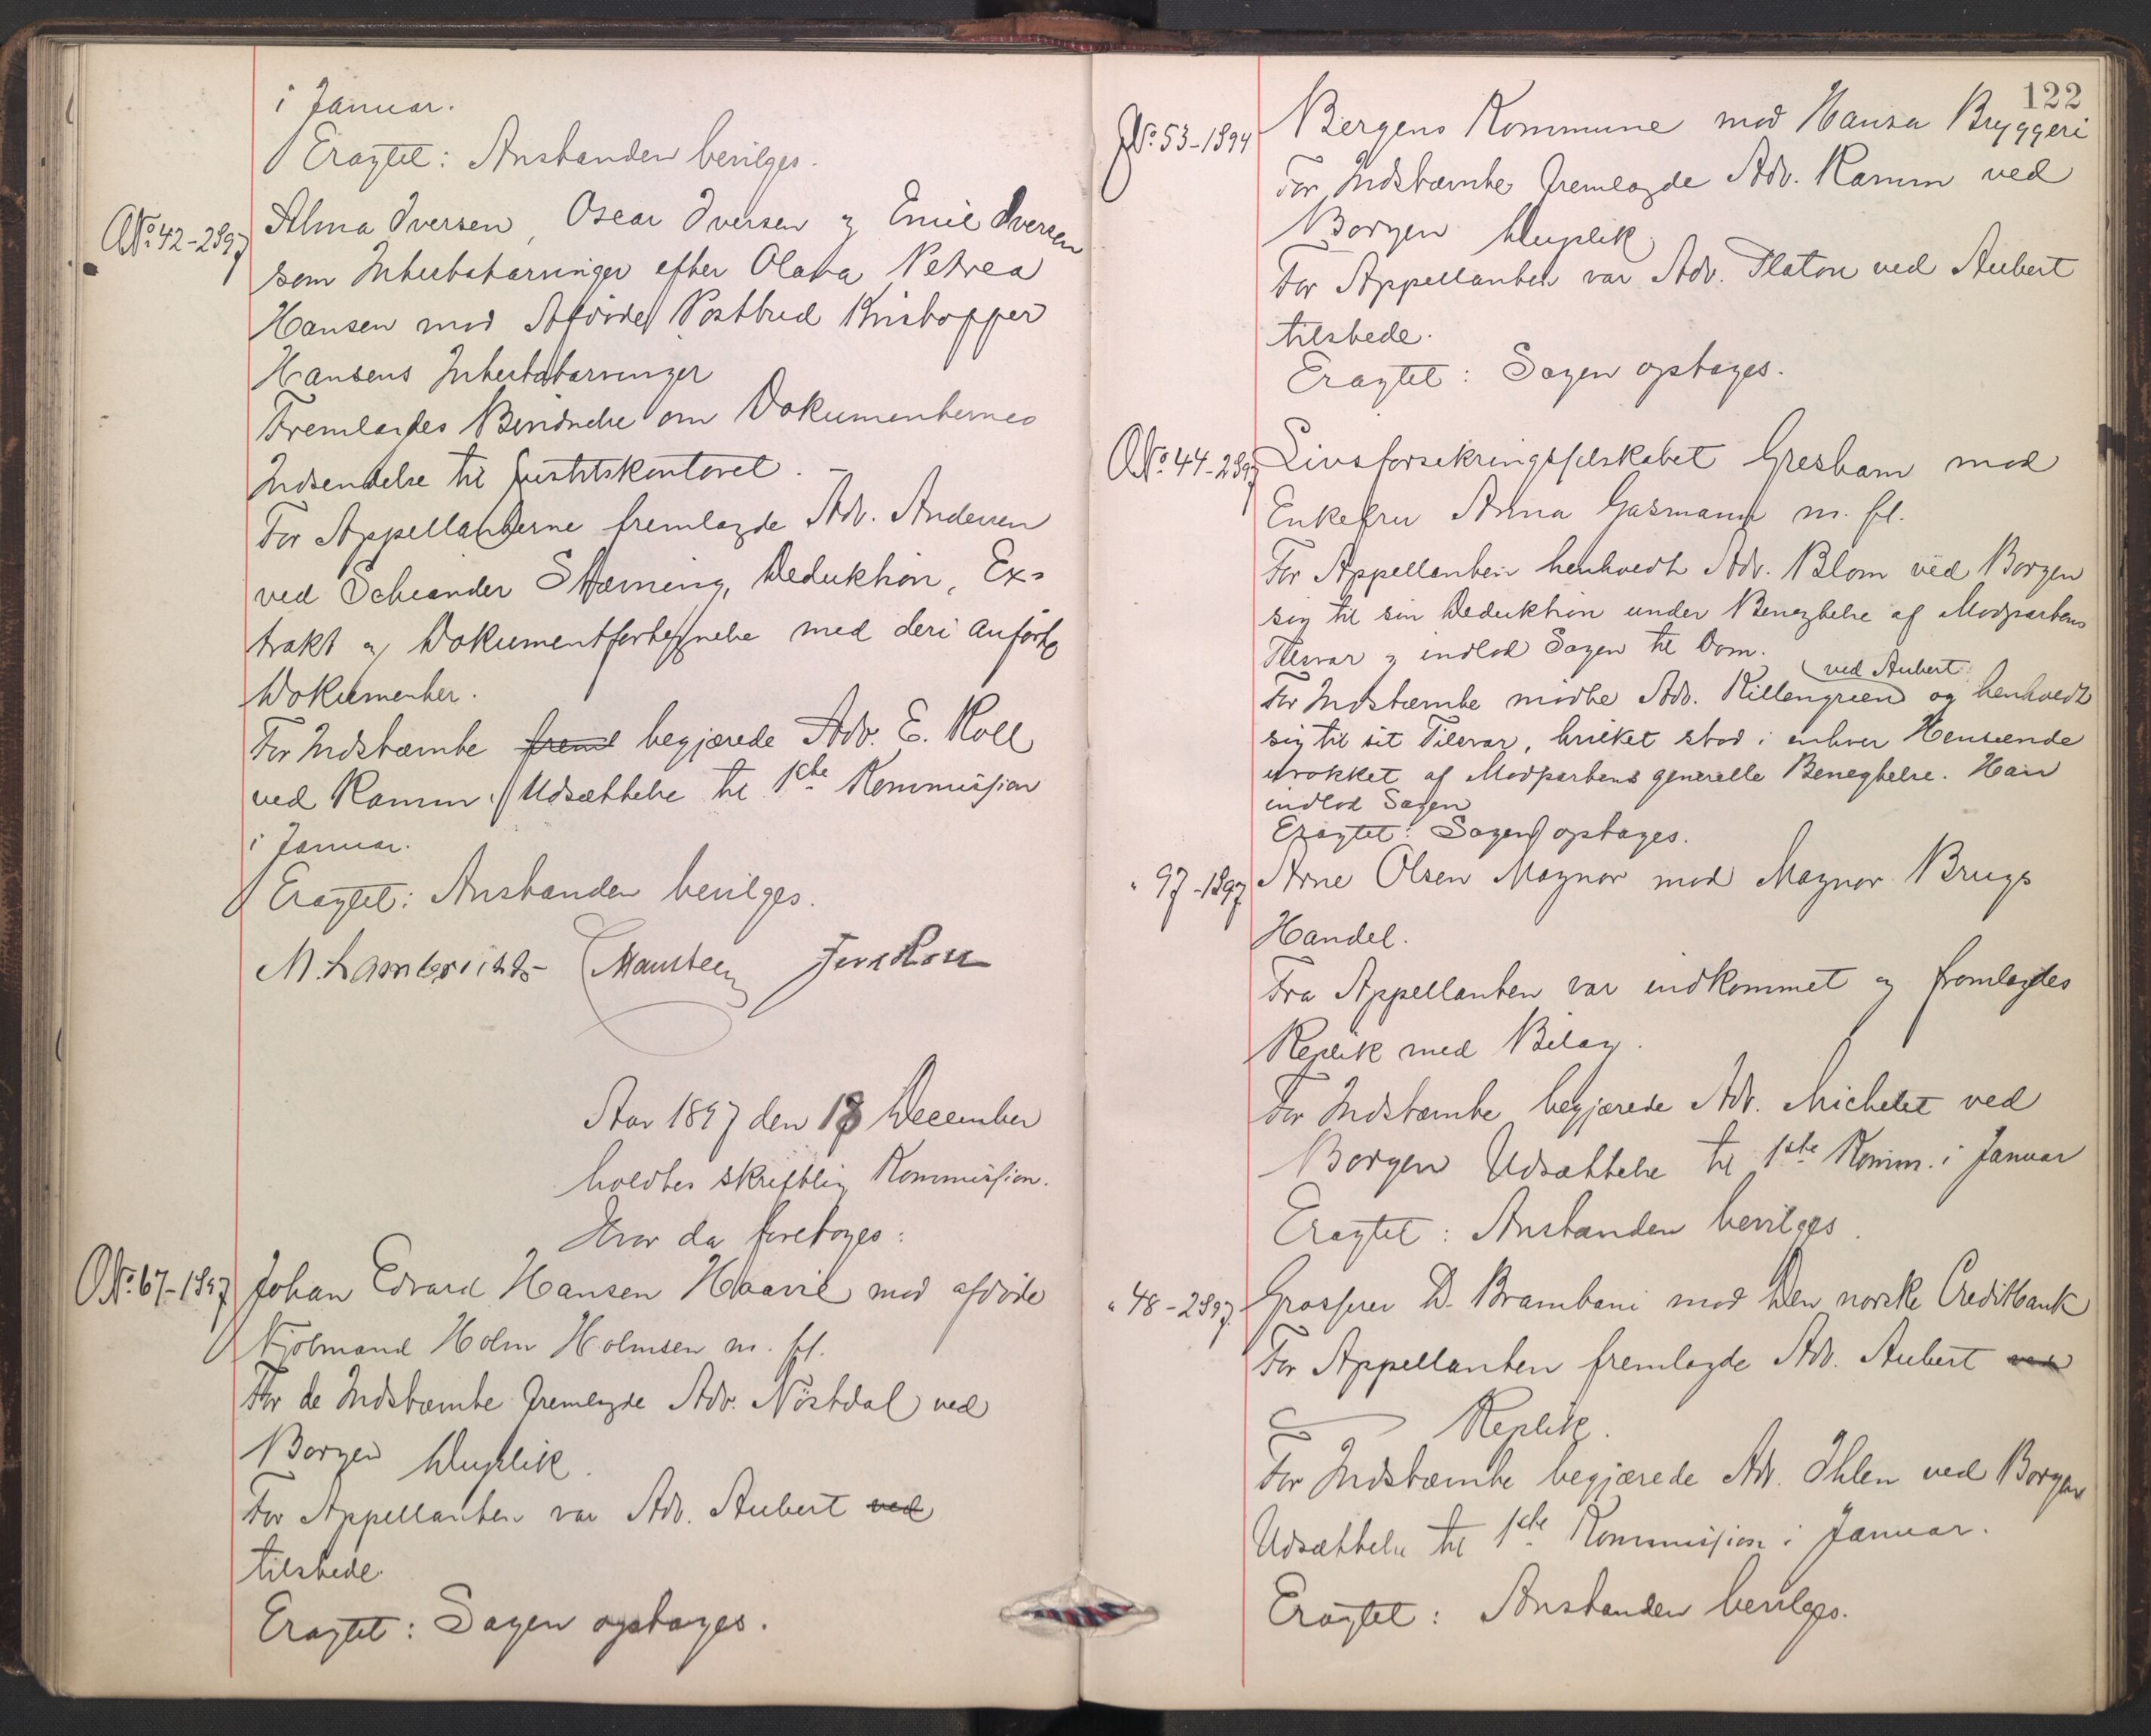 i Januar.
Eragtet: Anstanden bevilges.
No. 42-2897 Alma Iversen, Oscar Iversen og Emil Iversen
som Intestatarvinger efter Olava Petrea
Hansen mod Afdøde Postbud Kristoffer
Hansens Intestatarvinger
Fremlagdes Bevidnelse om Dokumenternes
Indsendelse til Justitskontoret. -
For Appellanterne fremlagde Adv. Andersen
ved Scheander Stævning, Deduktion, Ex=
trakt og Dokumentfortegnelse med deri anførte
Dokumenter.
For Indstævnte freml begjærede Adv. E. Roll
ved Ramm Udsættelse til 1ste Kommission
i Januar.
Eragtet: Anstanden bevilges.
M. Lambrechts Hansteen Jens Roll
Aar 1897 den 18 December
holdtes skriftlig Kommission.
Hvor da foretoges:
No. 67-1897 Johan Edvard Hansen Haavie mod afdøde
Kjølmand Holm Holmsen m. fl.
For de Indstævnte fremlagde Adv. Nöstdal ved
Borgen Duplik.
For Appellanten var Adv. Aubert ved
tilstede.
Eragtet: Sagen optages.
122
No. 53-1894 Bergens Kommune mod Hansa Bryggeri
For Indstævnte fremlagde Adv. Ramm ved
Borgen Duplik
For Appellanten var Adv. Platou ved Aubert
tilstede.
Eragtet: Sagen optages.
No. 44-2897 Livsforsikringsselskabet Gresham mod
Enkefru Anna Gasmann m. fl.
For Appellanten henholdt Adv. Blom ved Borgen
sig til sin Deduktion under Benegtelse af Modpartens
Tilsvar og indlod Sagen til Dom.
ved Aubert
For Indstævnte mødte Adv. Killengreen og henholdt
sig til sit Tilsvar, hvilket stod i enhver Henseende
urokket af Modpartens generelle Benegtelse. Han
indlod Sagen
Eragtet: Sagen optages.
" 97-1897 Arne Olsen Magnor mod Magnor Brugs
Handel.
Fra Appellanten var indkommet og fremlagdes
Replik med Bilag.
For Indstævnte begjærede Adv. Michelet ved
Borgen Udsættelse til 1ste Komm. i Januar
Eragtet: Anstanden bevilges.
" 48-2897 Grosserer D. Brambani mod Den norske Creditbank
For Appellanten fremlagde Adv. Aubert ved
Replik.
For Indstævnte begjærede Adv. Ihlen ved Borgen
Udsættelse til 1ste Kommission i Januar.
Eragtet: Anstanden bevilges.